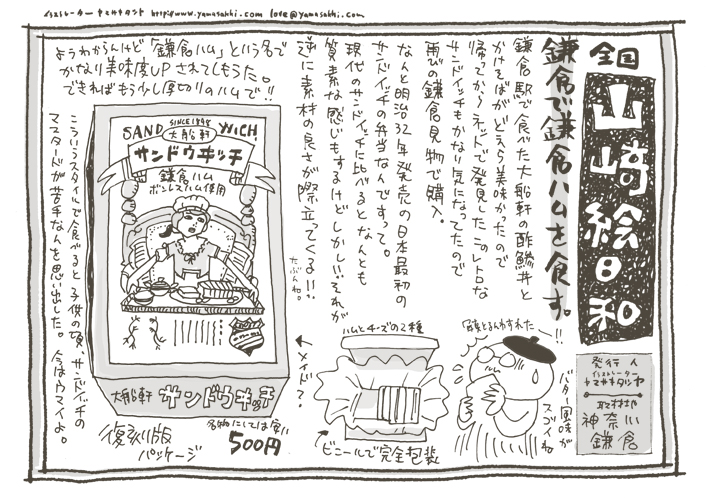 イラストレーター ヤマサキタツヤ http://www.yamasakki.com love@yamasakki.com
全国
山崎絵日和
発行人
イラストレーター
ヤマサキタツヤ
取材地
神奈川
鎌倉
鎌倉で鎌倉ハムを食す。
鎌倉駅で食べた大船軒の酢鯵丼と
かけそばがどえらい美味かったので
帰ってからネットで発見したこのレトロな
サンドイッチもかなり気になってたので
再びの鎌倉見物で購入。
なんと明治32年発売の日本最初の
サンドイッチの弁当なんですって。
現代のサンドイッチに比べるとなんとも
質素な感じもするけどしかし!!それが
逆に素材の良さが際立ってくる!!
たぶんね。
ようわからんけど「鎌倉ハム」という名で
かなり美味度UPされてしもうた。
できればもう少し厚切りのハムで!!
SANDWICH
SINCE 1899
大船軒
サンドウヰッチ
鎌倉ハム
ボンレスハム使用
大船軒 サンドウヰッチ
こういうスタイルで食べると子供の頃、サンドイッチの
マスタードが苦手なんを思い出した。今はウマイよ。
復刻版
パッケージ
名物にしては安い
500円
←メイド?
ハムとチーズの2種
ビニールで完全包装
!!
バター風味が
スゴイね